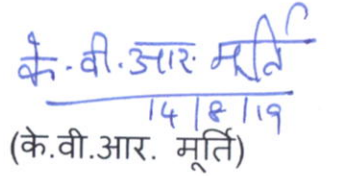 के.वी.आर. मूर्ति
14/8/19
(के.वी.आर. मूर्ति)